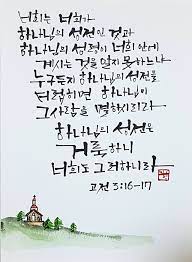 너희는 너희가
하나님의 성전인 것과
하나님의 성령이 너희 안에
계시는 것을 알지 못하느냐
누구든지 하나님의 성전을
더럽히면 하나님이
그 사람을 멸하시리라
하나님의 성전은
거룩하니
너희도 그러하니라
고전 3:16-17